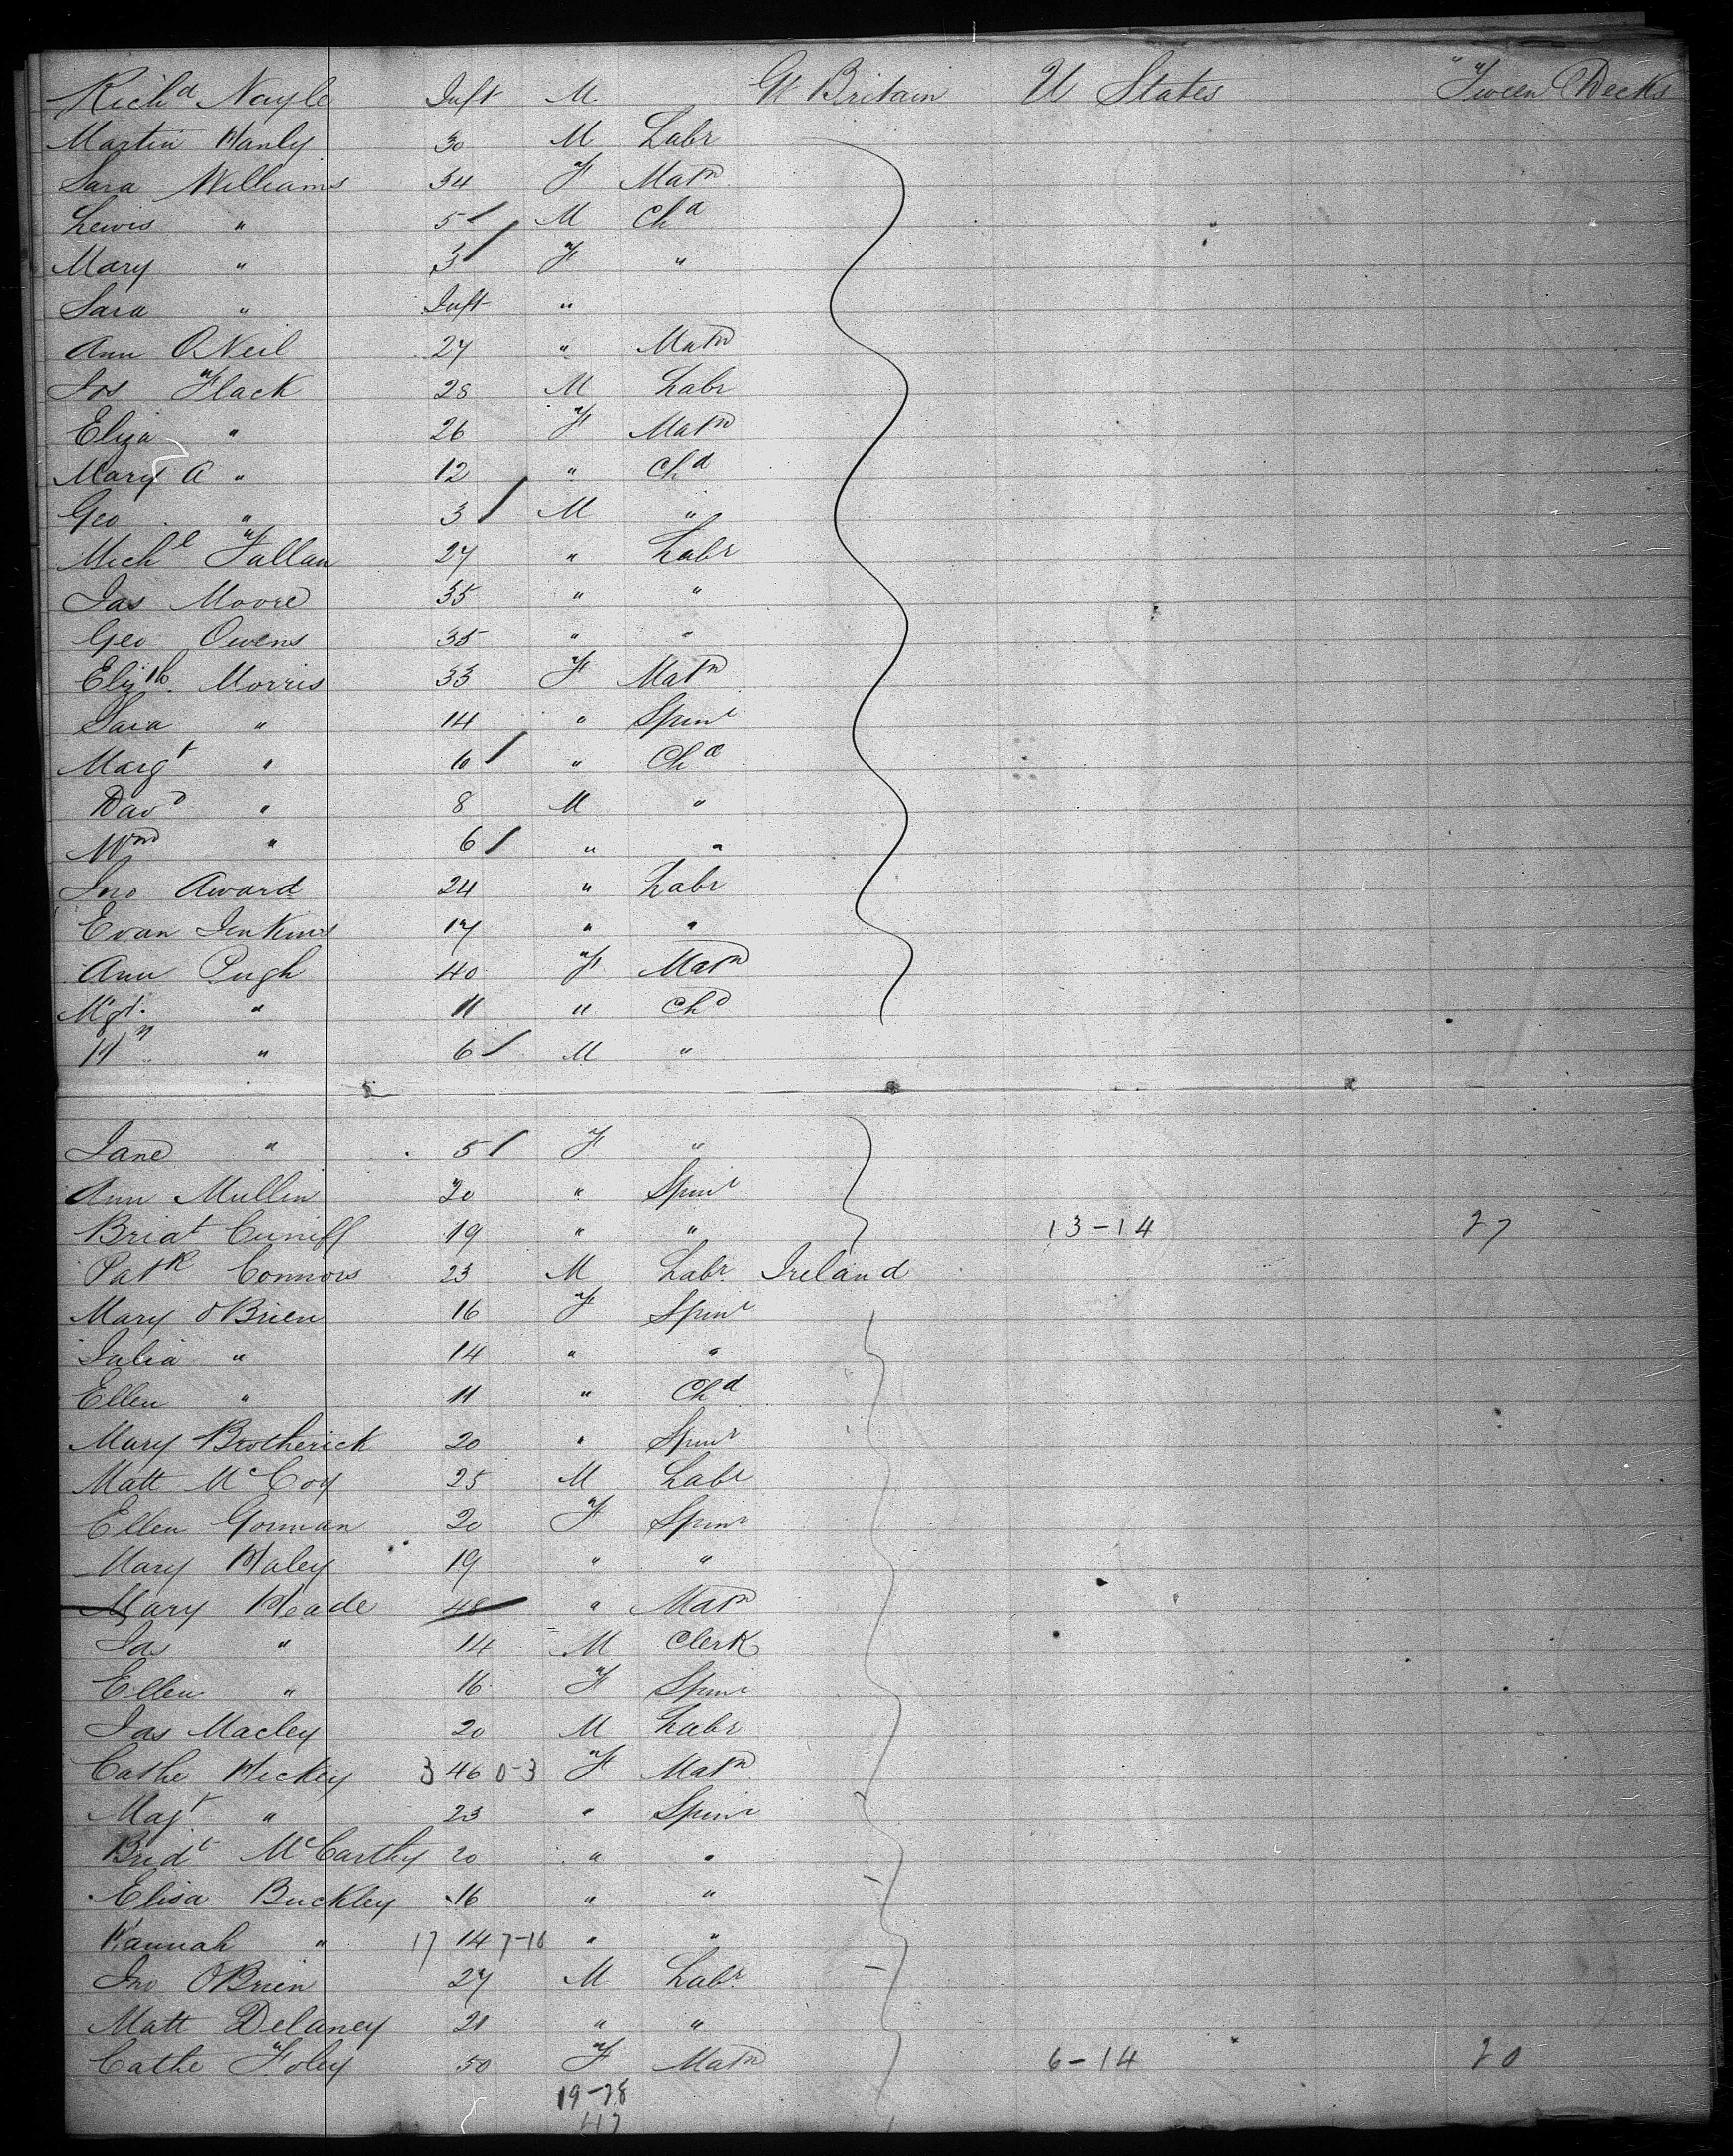 Richd Nayle Inft M. Gt Britain U States Tween Decks
Martin Hanly 30 M Labr
Sara Williams 34 F Matn
Lewis " 5 / M Chd
Mary " 3 / F "
Sara " Inft "
Ann ONeil 27 " Matn
Jos Flack 28 M Labr
Eliza " 26 F Matn
Mary A " 12 " Chd
Geo " 3 / M "
Michl Fallan 27 " Labr
Jas Moore 35 " "
Geo Owens 35 " "
Elizth Morris 33 F Matn
Sara " 14 " Spinr
Margt " 10 / " Chd
Davd " 8 M "
Wm " 6 / " "
Jno Award 24 " Labr
Evan Jenkins 17 " "
Ann Pugh 40 F Matn
Mgt. " 11 " Chd
" 6 / M "
Jane " 5 / F "
Ann Mullin 20 " Spinr
Bridt Cuniff 19 " " 13-14 27
Patk Connors 23 M Labr Ireland
Mary OBrien 16 F Spinr
Julia " 14 " "
Ellen " 11 " Chd
Mary Brotherick 20 " Spinr
Matt McCoy 25 M Labr
Ellen Gorman 20 F Spinr
Mary Haley 19 " "
Mary Meade 48 " Matn
Jas " 14 M Clerk
Ellen " 16 F Spinr
Jas Macley 20 M Labr
Cathe Hickey 3 46 0-3 F Matn
Magt " 23 " Spinr
Bridt McCarthy 20 " "
Elisa Buckley 16 " "
Hannah " 17 14 7-10 " "
Jno OBrien 27 M Labr
Matt Delaney 21 " "
Cathe Foley 50 F Matn 6-14 20
19-28
47